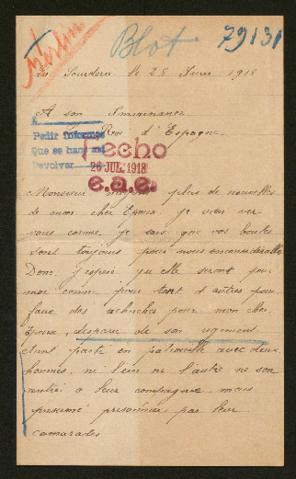 Blot 79131
Sourdeu le 28 Juin 1918
A son Eminence
Roi d'Espagne
Pedir informes
Que se han
Devolver
Hecho
26 JUL. 1918
e.a.e.
Monsieur plus de nouvelles
de mon cher Epoux je vien ver
vous comme je sais que vos bontés
sont toujours pour nous inconsiderable
Donc j'espère qu'elle seront pour
moi comme pour tant d'autres pour
faire des recherches pour mon cher
Epoux, disparu de son regiment
étant partie en patrouille avec deux
hommes, ni l'un ne l'autre ne son
rentré a leur compagnie mais
presumé prisonnier par leur
camarades